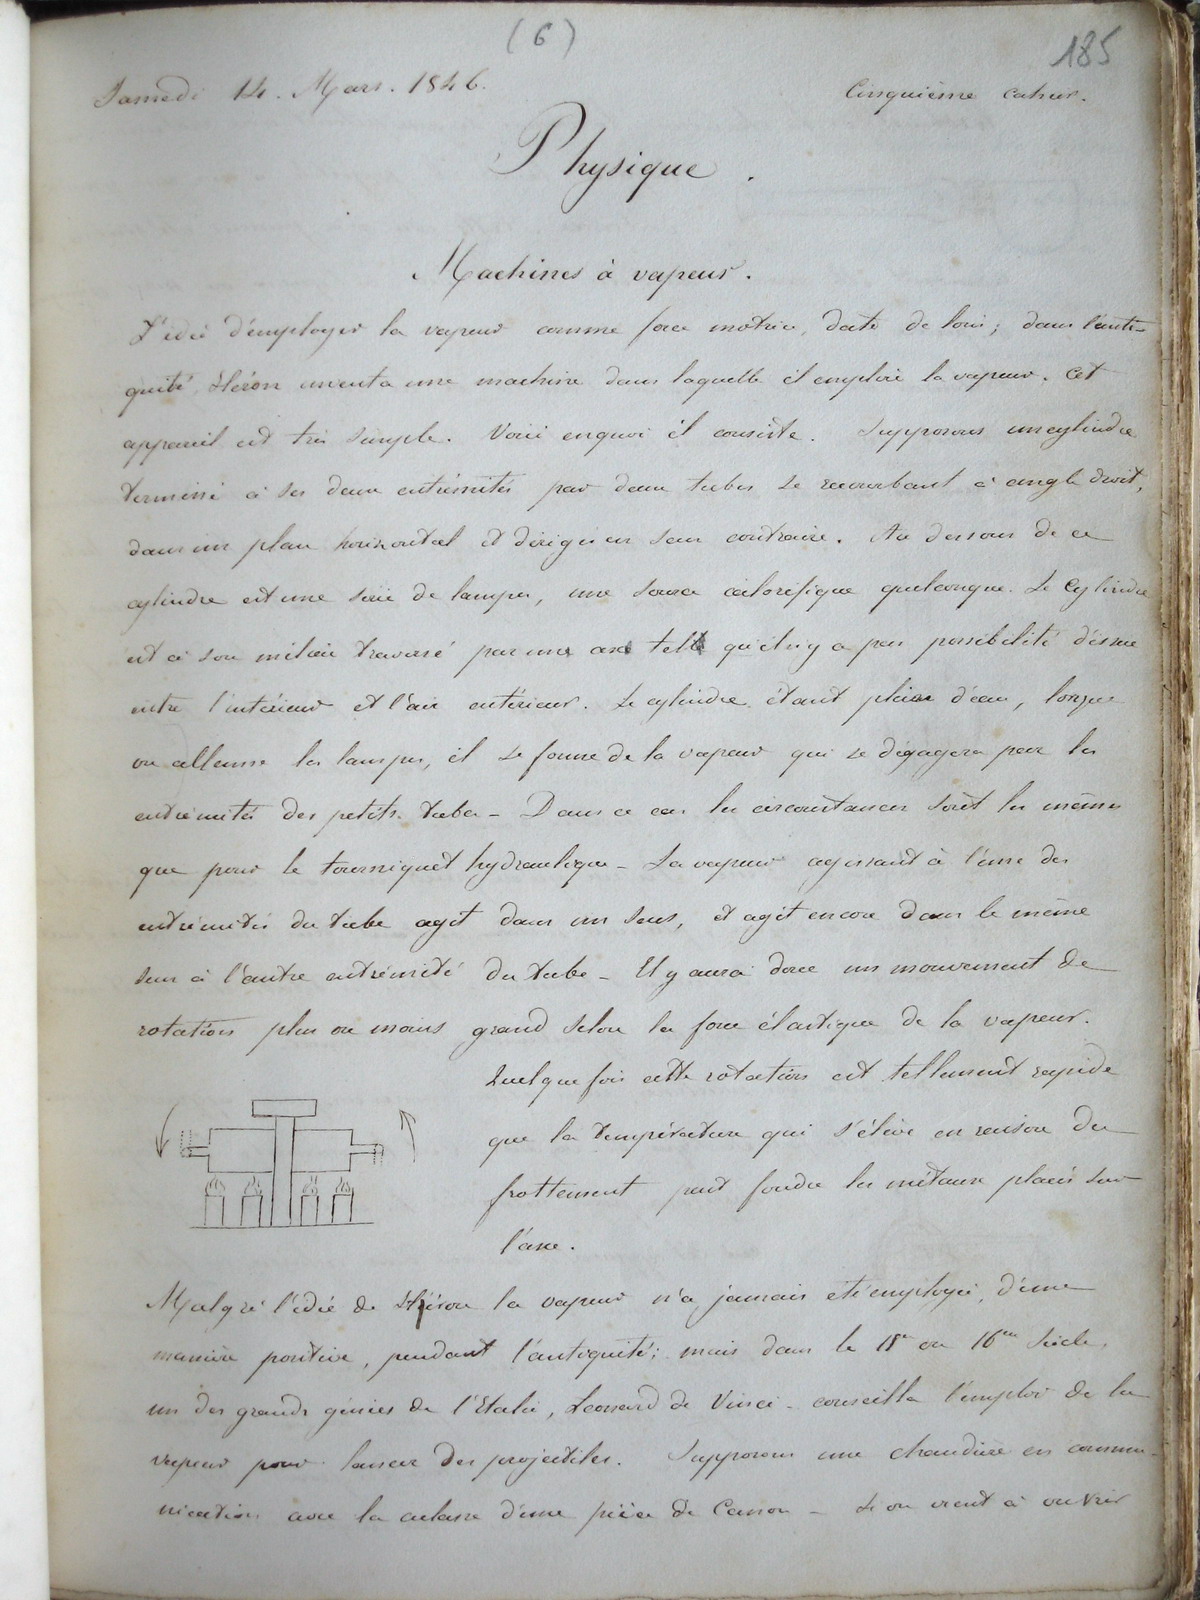 (6)
185
Samedi 14. Mars. 1846.
Cinquième cahier.
Physique.
Machines à vapeur.
L'idée d'employer la vapeur comme force motrice, date de loin; dans l'anti-
quité, Héron inventa une machine dans laquelle il emploie la vapeur. Cet
appareil est très simple. Voici en quoi il consiste. Supposons un cylindre
terminé à ses deux extrémités par deux tubes se recourbant à angle droit,
dans un plan horizontal et dirigés en sens contraire. Au dessous de ce
cylindre est une série de lampes, une source calorifique quelconque. Le Cylindre
est à son milieu traversé par un axe tel qu'il n'y a pas possibilité d'issue
entre l'intérieur et l'air extérieur. Le cylindre étant plein d'eau, lorsque
on allume les lampes, il se forme de la vapeur qui se dégagera par les
extrémités des petits tubes - Dans ce cas les circonstances sont les mêmes
que pour le tourniquet hydraulique - La vapeur agissant à l'une des
extrémités du tube agit dans un sens, et agit encore dans le même
sens à l'autre extrémité du tube - Il y aura donc un mouvement de
rotation plus ou moins grand selon la force élastique de la vapeur.
Quelque fois cette rotation est tellement rapide
que la température qui s'élève en raison du
frottement peut fondre les métaux placés sur
l'axe.
Malgré l'idée de Héron la vapeur n'a jamais été employée, d'une
manière positive, pendant l'antiquité; mais dans le 15e ou 16me Siècle,
un des grands génies de l'Italie, Léonard de Vinci - conseilla l'emploi de la
vapeur pour lancer des projectiles. Supposons une chaudière en commu-
nication avec la culasse d'une pièce de Canon - Si on vient à ouvrir